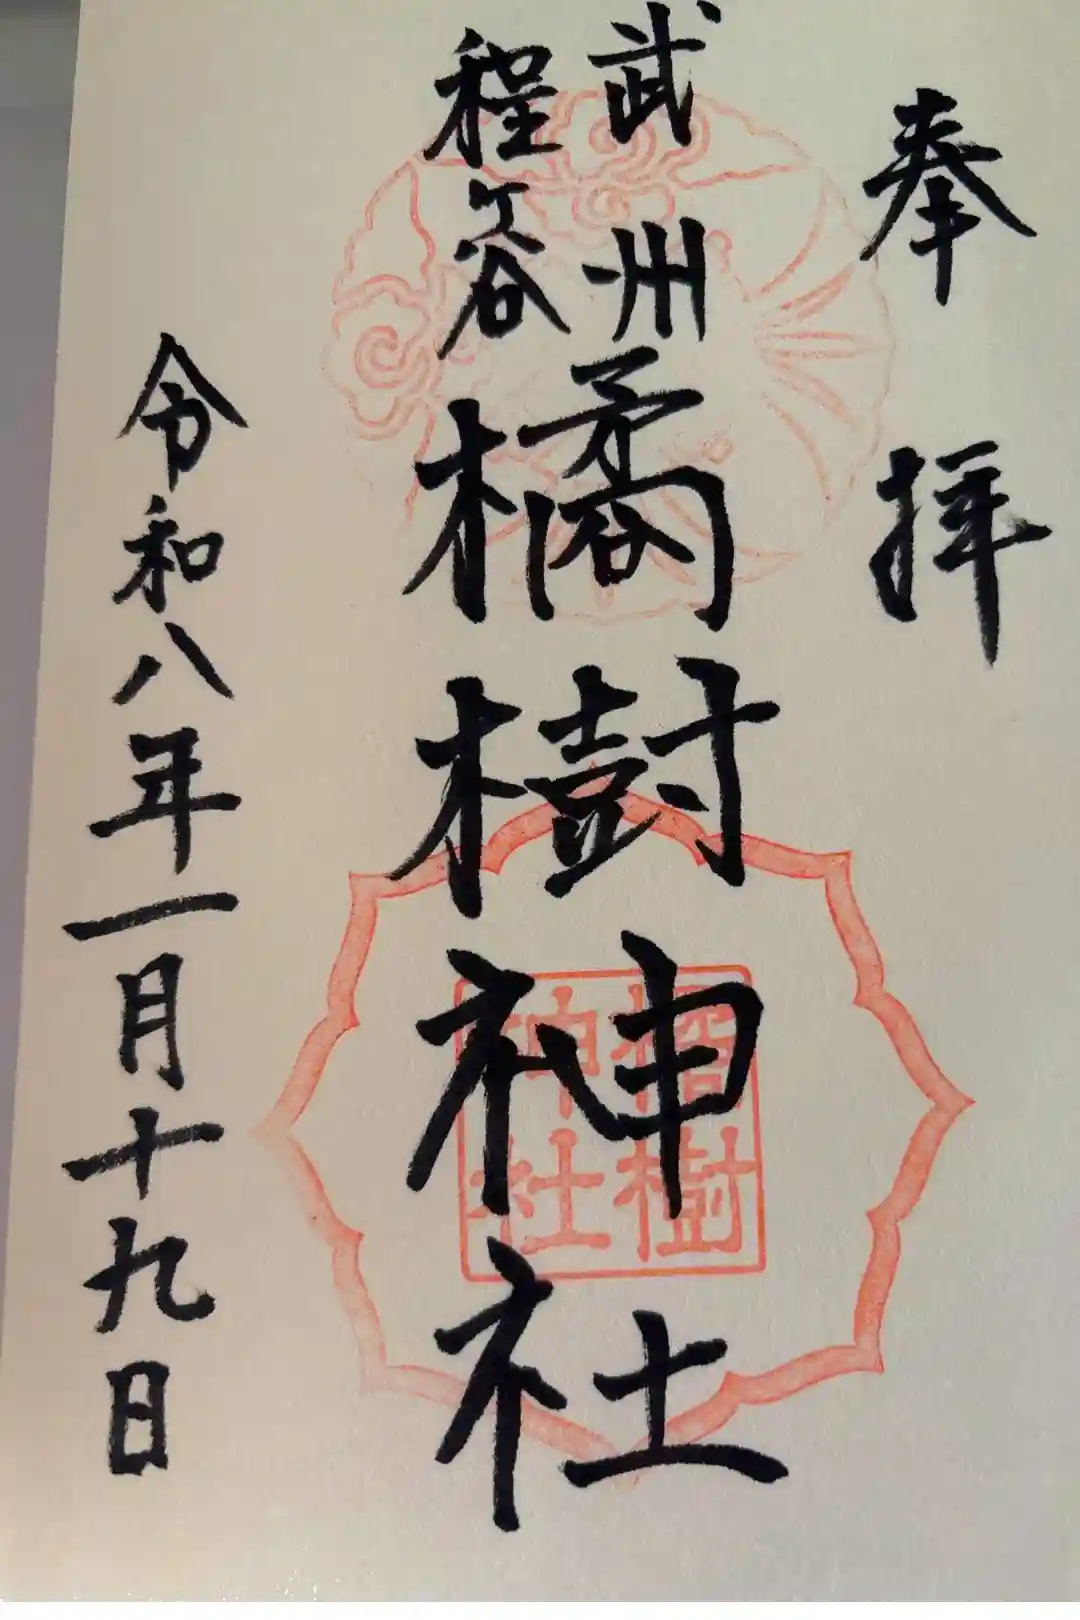 奉拝
武州
程ヶ谷
橘樹神社
橘樹
神社
令和八年一月十九日